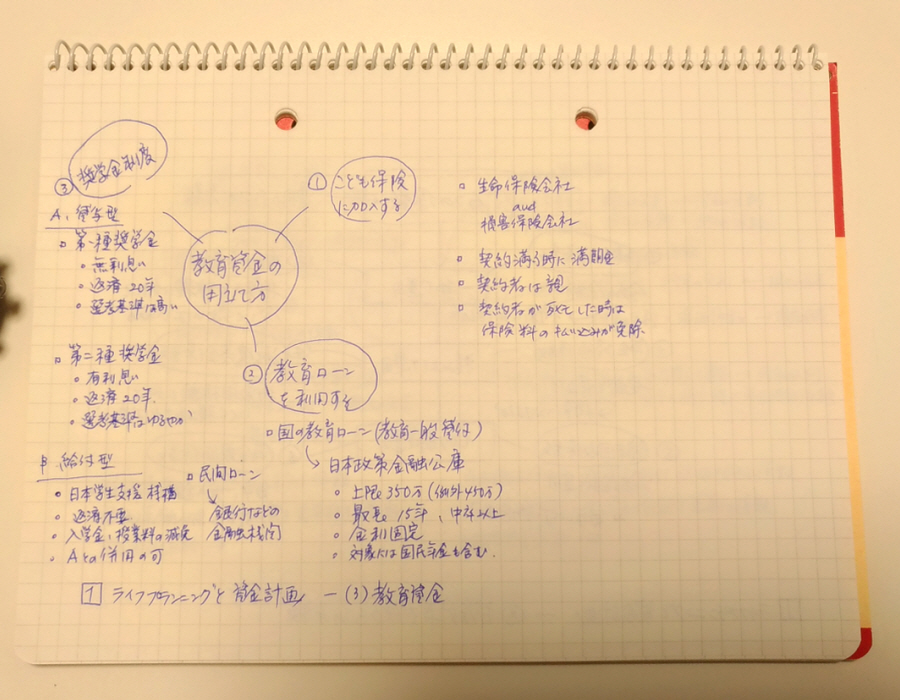 教育資金の
用立て方
① こども保険
に加入する
▫ 生命保険会社
and
損害保険会社
▫ 契約満了時に満期金
▫ 契約者は親
▫ 契約者が死亡した時は
保険料の払い込みが免除
② 教育ローン
を利用する
▫ 国の教育ローン(教育一般貸付)
日本政策金融公庫
・上限350万(例外450万)
・最長15年、中卒以上
・金利固定
・対象には国民年金も含む.
▫ 民間ローン
銀行などの
金融機関
③ 奨学金制度
A. 貸与型
▫ 第一種奨学金
・無利息
・返済20年
・選考基準は高い
▫ 第二種奨学金
・有利息
・返済20年.
・選考基準はゆるやか
B. 給付型
・日本学生支援機構
・返済不要
・入学金、授業料の減免
・Aとの併用の可
1 ライフプランニングと資金計画 ー(3)教育資金